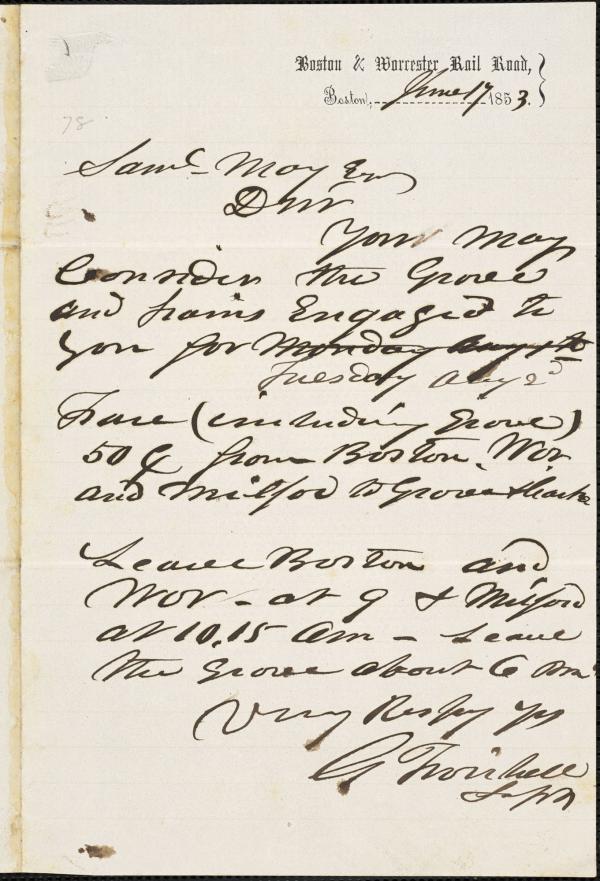 Boston & Worcester Rail Road,
Boston, June 17 1853.
78
Saml May Esq
D Sir
You may
Consider the Grove
and trains Engaged to
you for Monday Aug 1st
Tuesday Aug 2d
Fare (including Grove)
50 ¢ from Boston, Wor
and Milford to Grove & back
Leave Boston and
Wor - at 9 & Milford
at 10.15 Am - Leave
the Grove about 6 PM
Very Respy Yrs
G Twichell
Supt